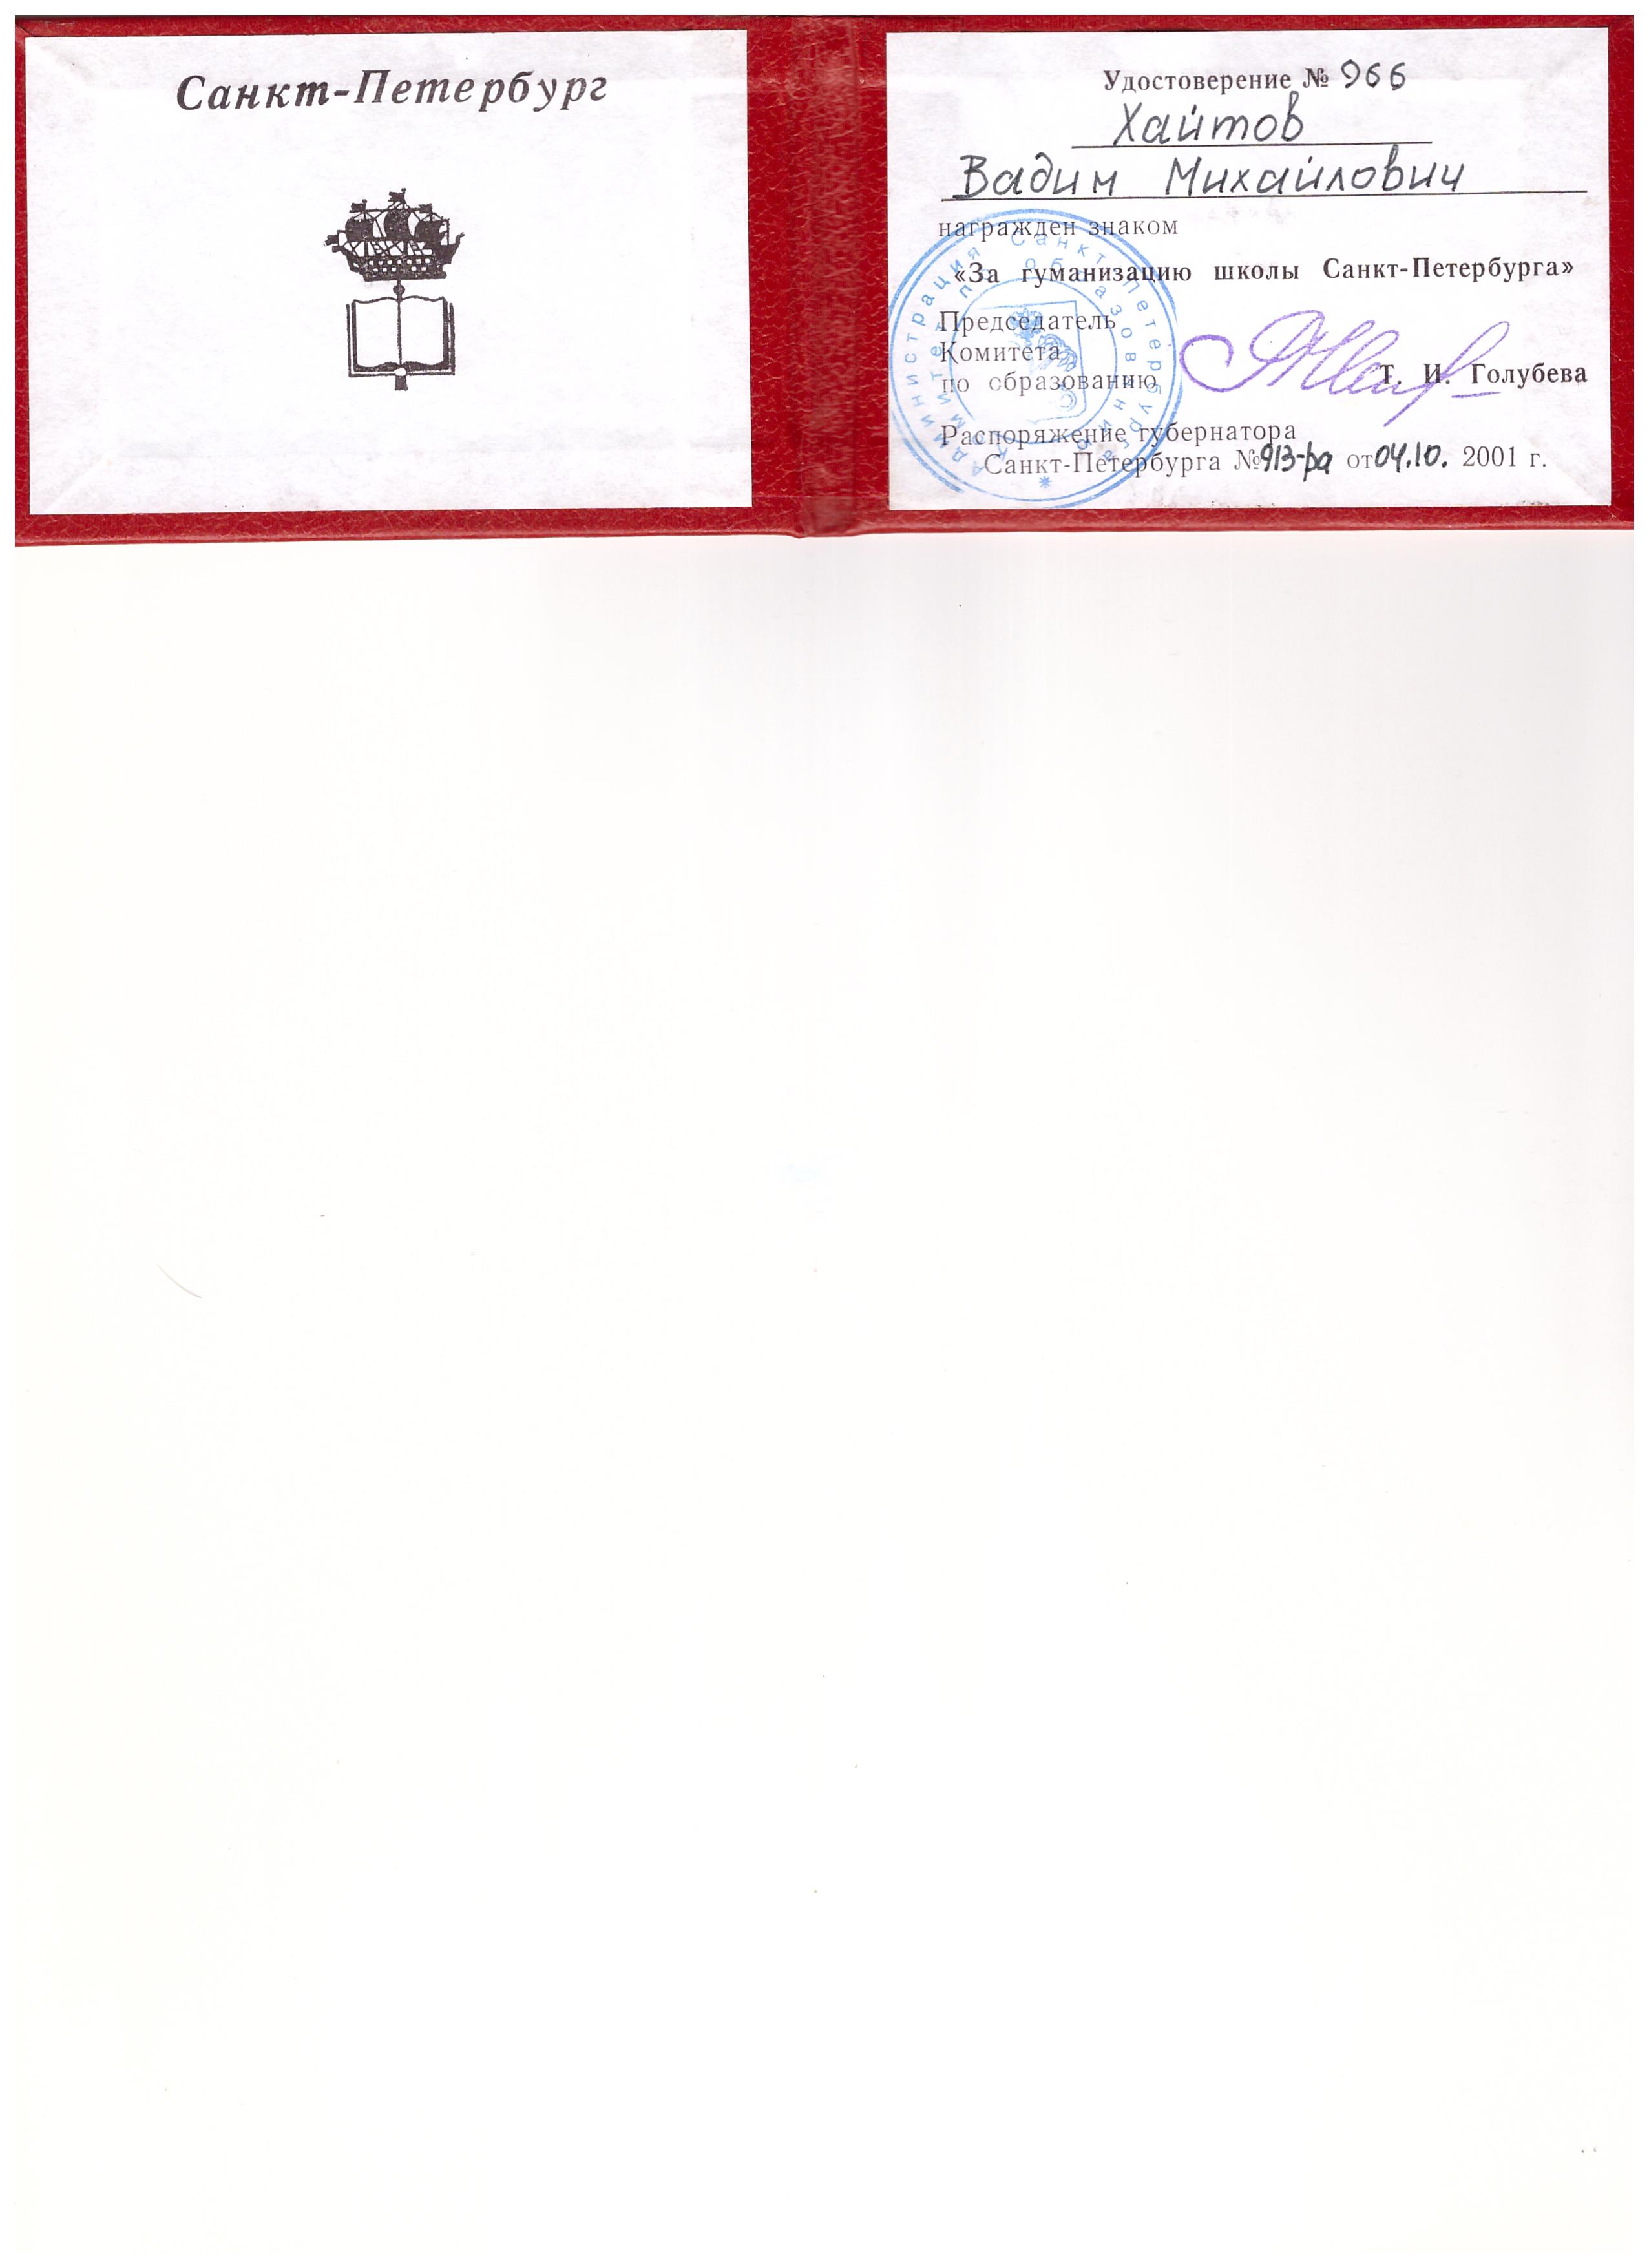 Санкт-Петербург
Удостоверение № 966
Хайтов
Вадим Михайлович
награжден знаком
«За гуманизацию школы Санкт-Петербурга»
Председатель
Комитета
по образованию
Т. И. Голубева
Распоряжение губернатора
Санкт-Петербурга № 913-ра от 04.10. 2001 г.
Администрация Санкт-Петербурга
Комитет по образованию